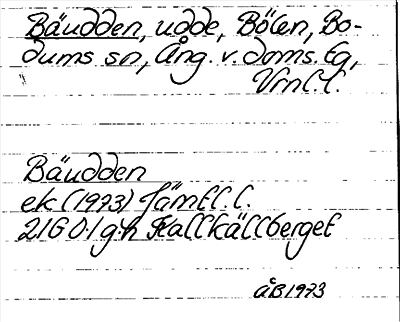 Bäudden, udde, Bölen, Bo-
dums sn, Ång. v. doms. lg,
Vrnl. l.
Bäudden
ek (1973) Jämtl. l.
21G 0-1 g-h Kallkällberget
ÅB 1973